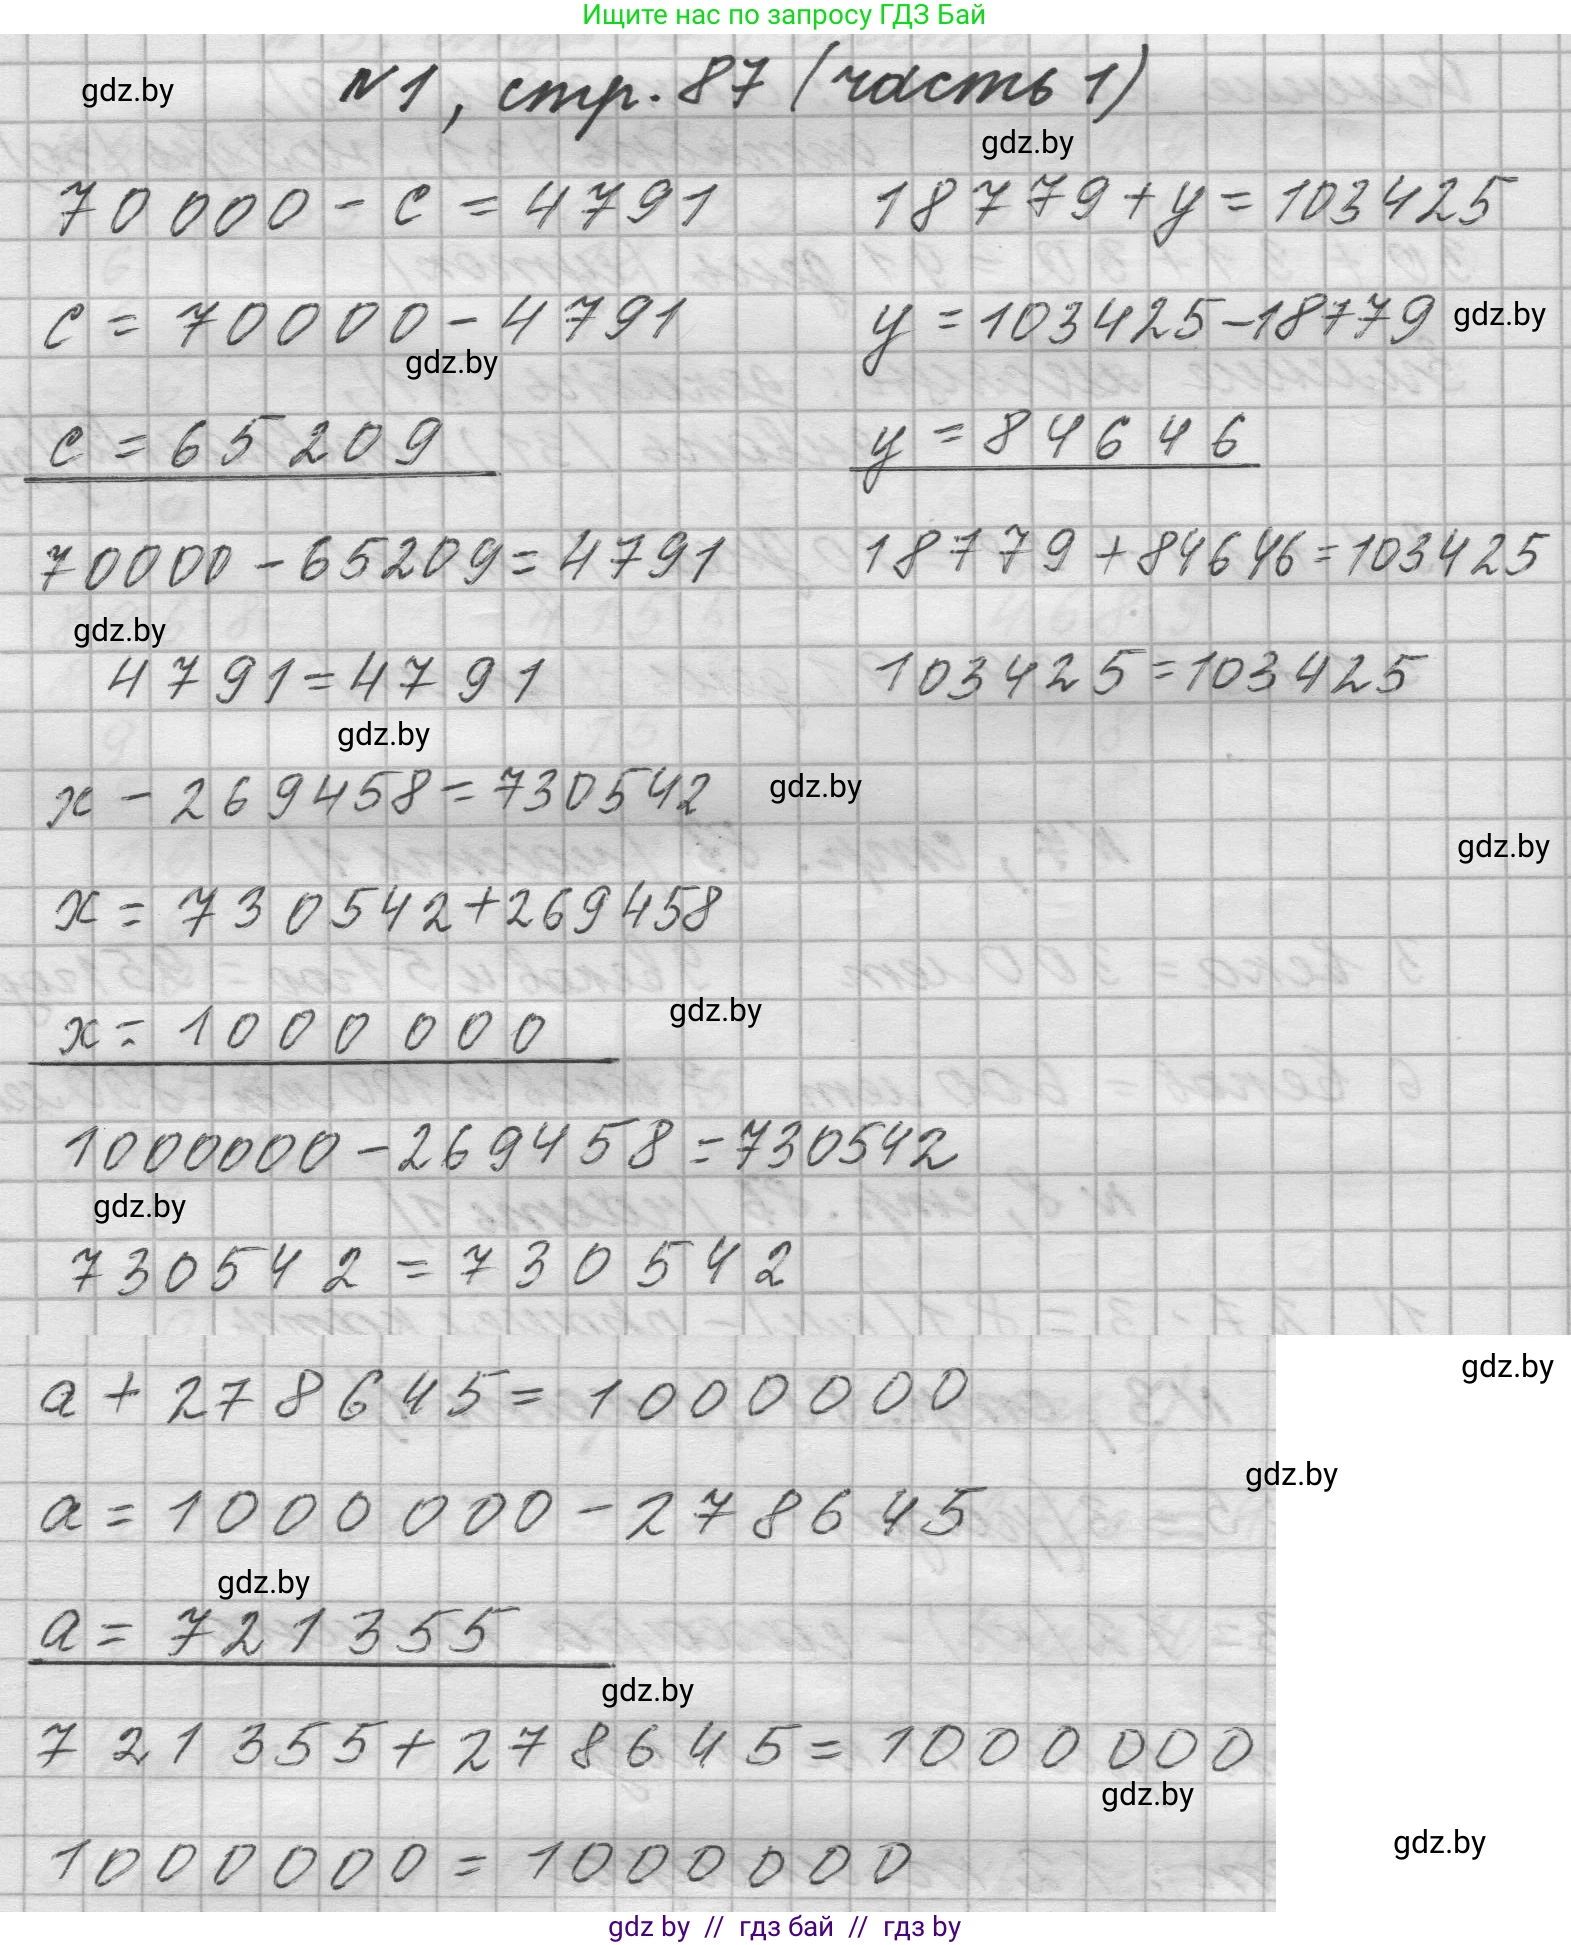 Ищите нас по запросу ГДЗ Бай
gdz.by
№1, стр. 87 (часть 1)
gdz.by
70000 - c = 4791
18779 + y = 103425
c = 70000 - 4791
y = 103425 - 18779
gdz.by
gdz.by
c = 65209
y = 84646
70000 - 65209 = 4791
18779 + 84646 = 103425
gdz.by
4791 = 4791
103425 = 103425
gdz.by
x - 269458 = 730542
gdz.by
gdz.by
x = 730542 + 269458
x = 1000000
gdz.by
1000000 - 269458 = 730542
gdz.by
730542 = 730542
gdz.by
a + 278645 = 1000000
gdz.by
a = 1000000 - 278645
gdz.by
a = 721355
gdz.by
721355 + 278645 = 1000000
gdz.by
1000000 = 1000000
gdz.by
gdz by // гдз бай // гдз by